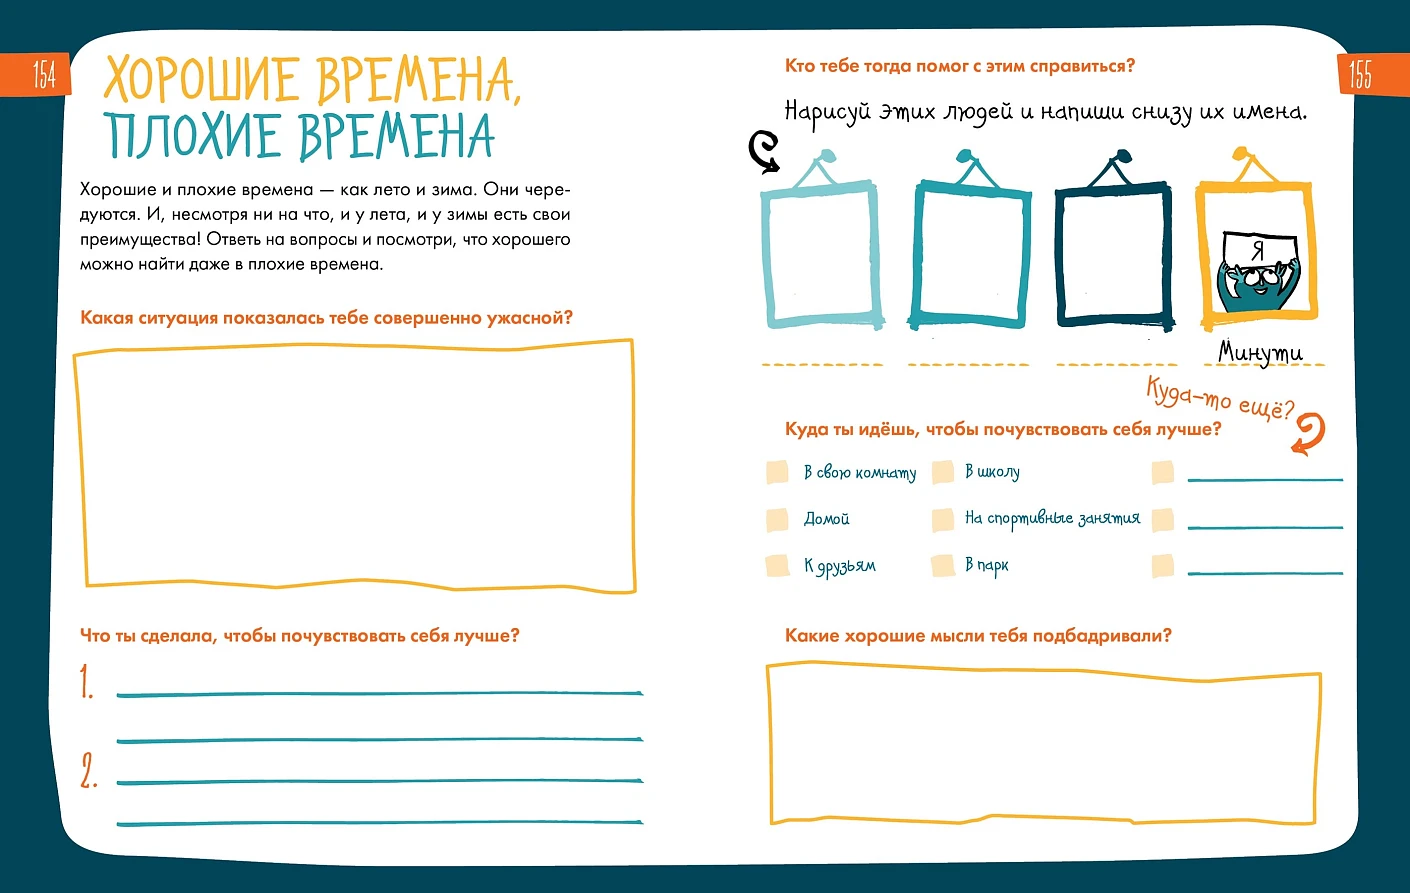 154
ХОРОШИЕ ВРЕМЕНА,
ПЛОХИЕ ВРЕМЕНА
Хорошие и плохие времена — как лето и зима. Они чере-
дуются. И, несмотря ни на что, и у лета, и у зимы есть свои
преимущества! Ответь на вопросы и посмотри, что хорошего
можно найти даже в плохие времена.
Какая ситуация показалась тебе совершенно ужасной?
Что ты сделала, чтобы почувствовать себя лучше?
1.
2.
155
Кто тебе тогда помог с этим справиться?
Нарисуй этих людей и напиши снизу их имена.
Я
Минути
Куда-то ещё?
Куда ты идёшь, чтобы почувствовать себя лучше?
В свою комнату
В школу
Домой
На спортивные занятия
К друзьям
В парк
Какие хорошие мысли тебя подбадривали?